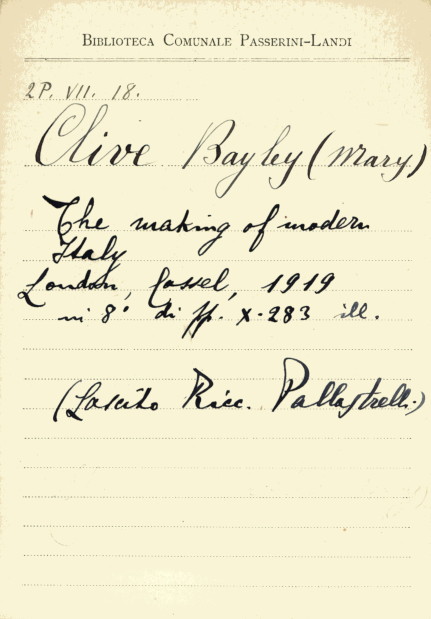 BIBLIOTECA COMUNALE PASSERINI-LANDI
2P. VII. 18.
Clive Bayley (Mary)
The making of modern
Italy
London, Cassel, 1919
in 8° di pp. X-283 ill.
(Lascito Ricc. Pallastrelli)